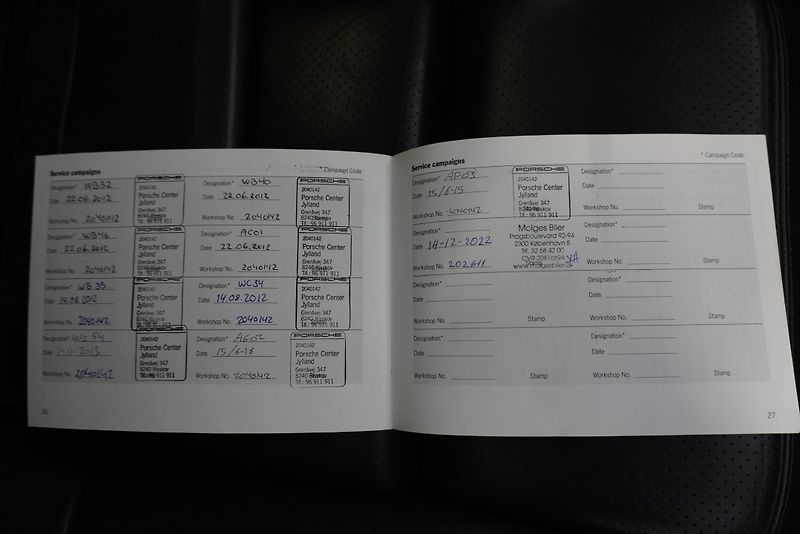 Service campaigns
* Campaign Code
Designation* WB32
Date 22.06.2012
Workshop No. 2040142
PORSCHE
2040142
Porsche Center
Jylland
Grenåvej 347
8240 Risskov
Tlf.: 96 911 911
Designation* WB40
Date 22.06.2012
Workshop No. 2040142
PORSCHE
2040142
Porsche Center
Jylland
Grenåvej 347
8240 Risskov
Tlf.: 96 911 911
Designation* WB46
Date 22.06.2012
Workshop No. 2040142
2040142
Porsche Center
Jylland
Grenåvej 347
8240 Risskov
Tlf.: 96 911 911
Designation* AC01
Date 22.06.2012
Workshop No. 2040142
2040142
Porsche Center
Jylland
Grenåvej 347
8240 Risskov
Tlf.: 96 911 911
Designation* WB 35
Date 14.08.2012
Workshop No. 2040142
2040142
Porsche Center
Jylland
Grenåvej 347
8240 Risskov
Tlf.: 96 911 911
Designation* WC34
Date 14.08.2012
Workshop No. 2040142
2040142
Porsche Center
Jylland
Grenåvej 347
8240 Risskov
Tlf.: 96 911 911
Designation*
Date 1-11-2013
Workshop No. 2040142
PORSCHE
2040142
Porsche Center
Jylland
Grenåvej 347
8240 Risskov
Tlf.: 96 911 911
Designation*
Date
Workshop No. 2040142
PORSCHE
2040142
Porsche Center
Jylland
Grenåvej 347
8240 Risskov
Tlf.: 96 911 911
26
Service campaigns
* Campaign Code
Designation* AF03
Date 15/6-15
Workshop No. 2040142
PORSCHE
2040142
Porsche Center
Jylland
Grenåvej 347
8240 Risskov
Tlf.: 96 911 911
Designation*
Date
Workshop No. Stamp
Designation*
Date 1A-12-2022
Workshop No. 202611
Molges Biler
Pragsboulevard 92-94
2300 København S
Tlf. 32 58 42 00
CVR 20816694
www.molgesbiler
Designation*
Date
Workshop No. Stamp
Designation*
Date
Workshop No. Stamp
Designation*
Date
Workshop No. Stamp
Designation*
Date
Workshop No. Stamp
Designation*
Date
Workshop No. Stamp
27